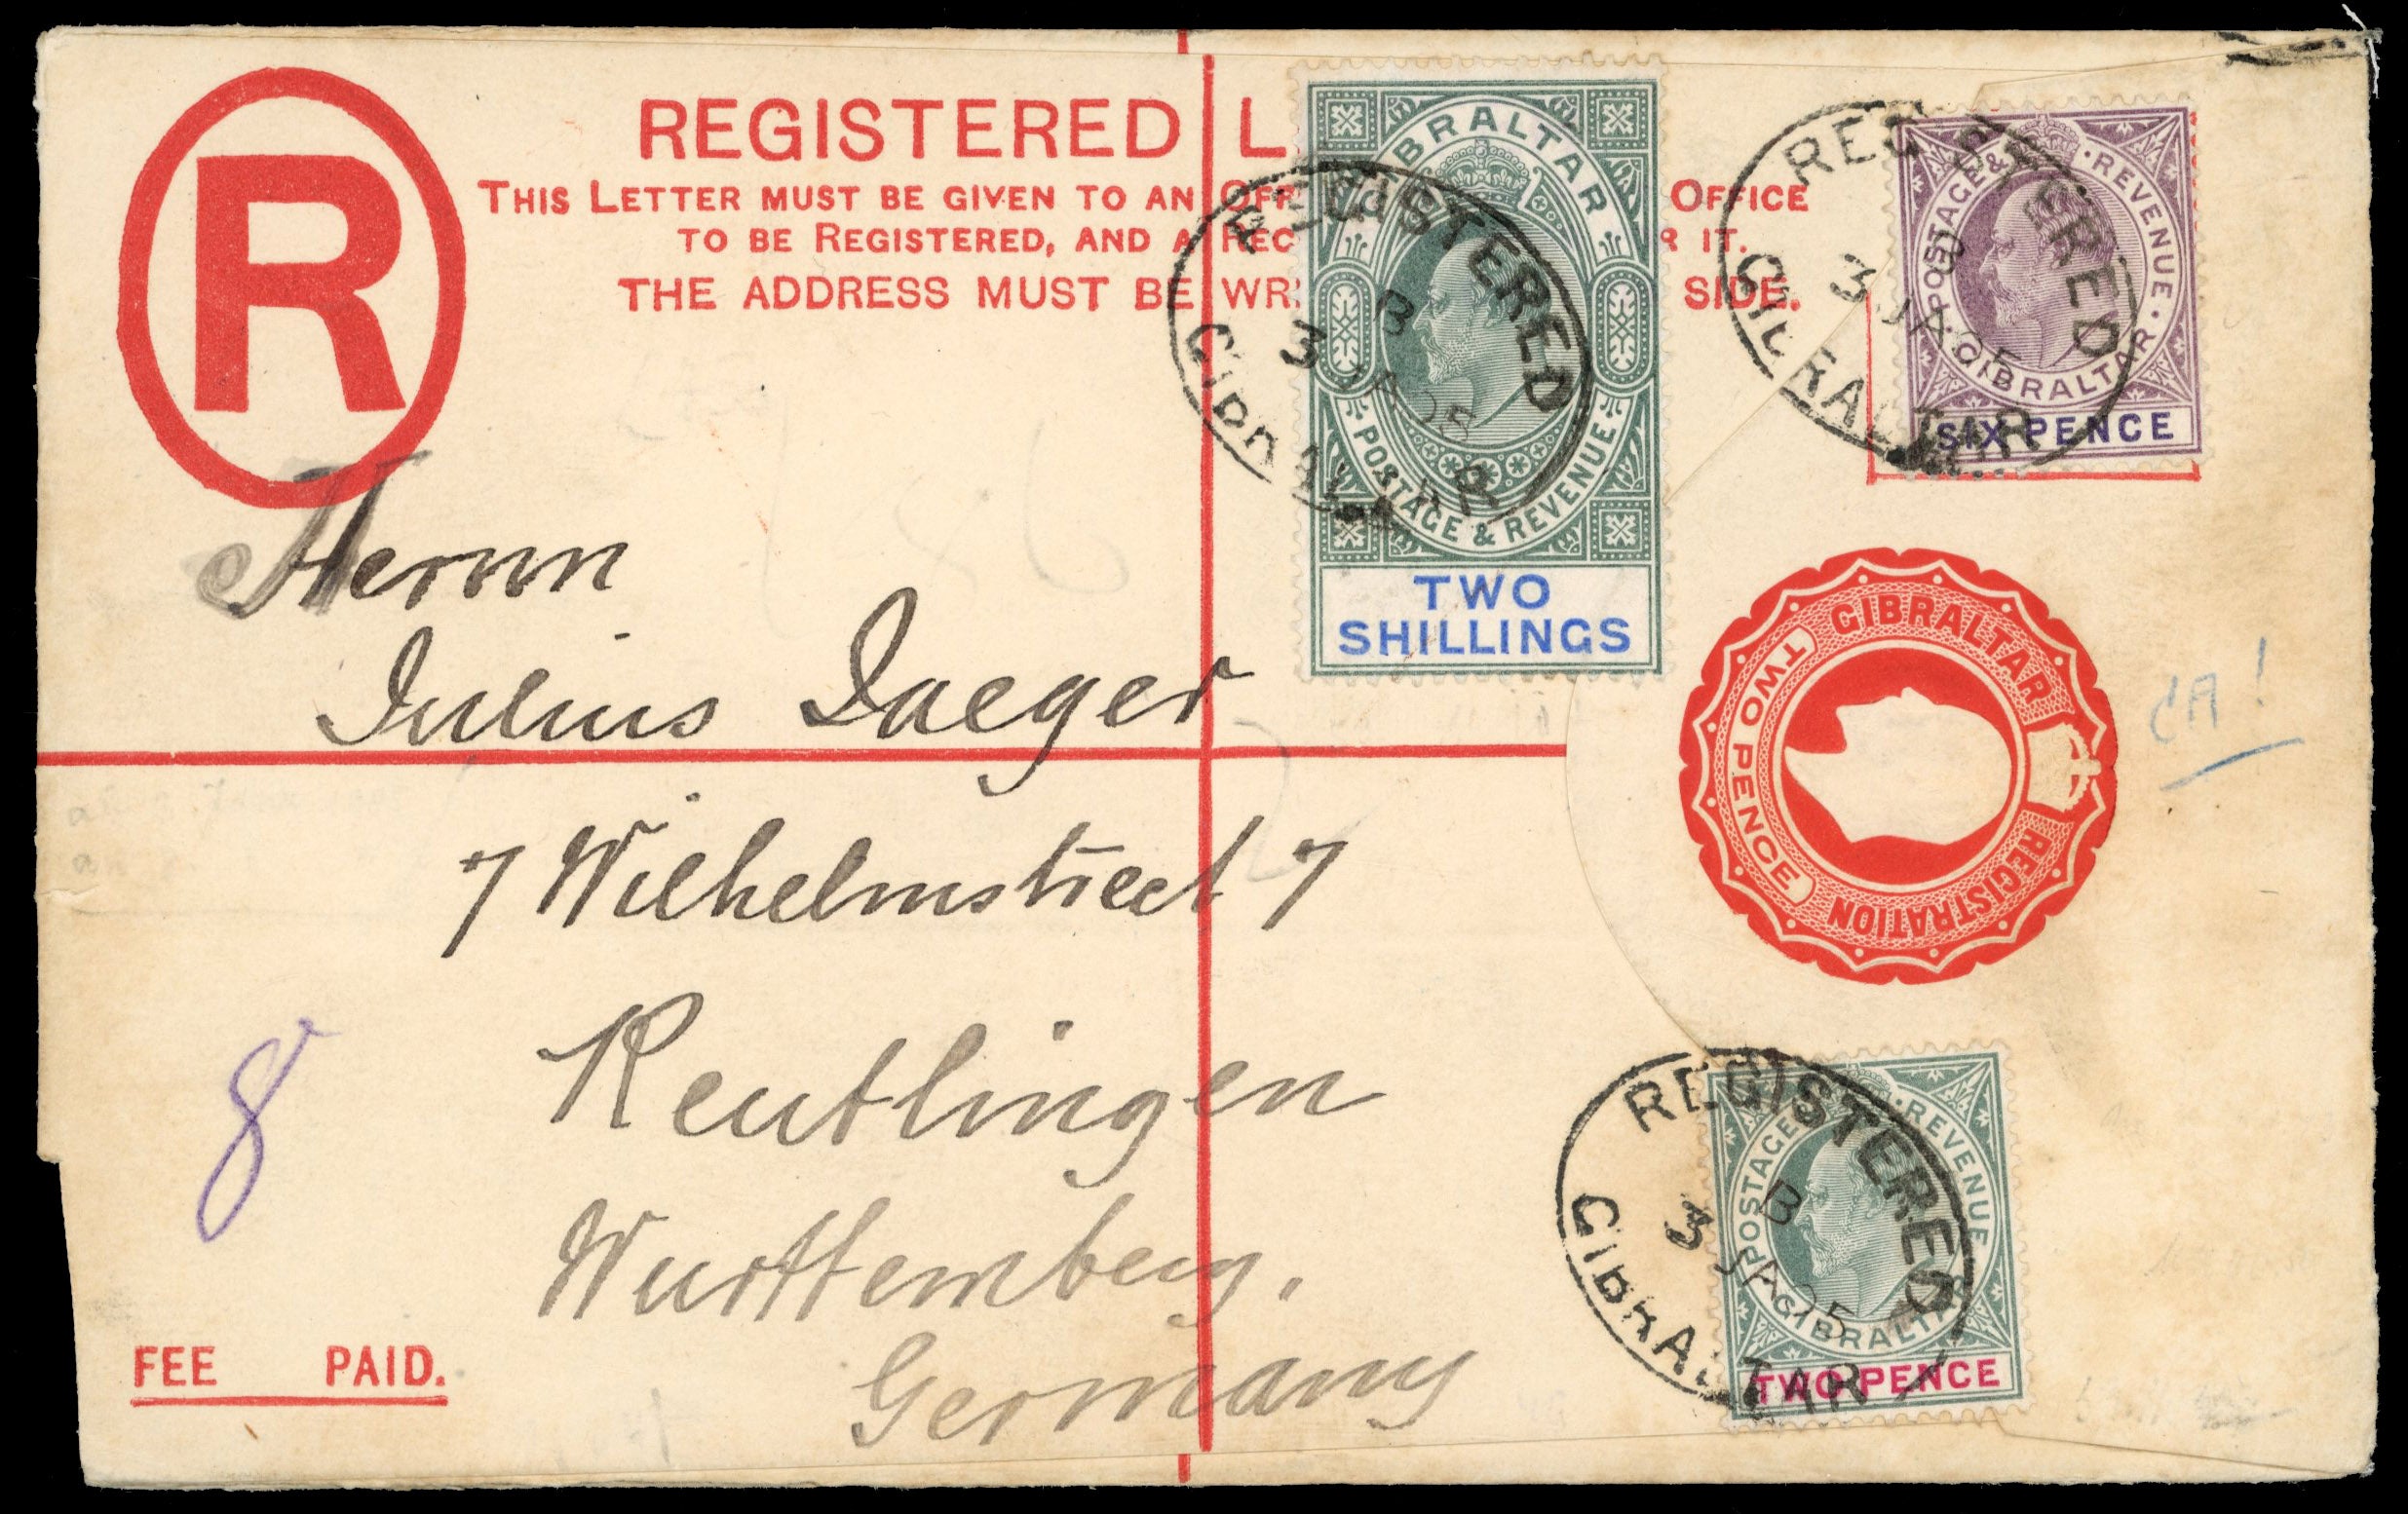 R
REGISTERED L
THIS LETTER MUST BE GIVEN TO AN OFF OFFICE
TO BE REGISTERED, AND A REC R IT.
THE ADDRESS MUST BE WRI SIDE.
GIBRALTAR
POSTAGE & REVENUE
TWO
SHILLINGS
REGISTERED
B
3 JA 05
GIBRALTAR
POSTAGE & REVENUE
GIBRALTAR
SIX PENCE
REGISTERED
B
3 JA 05
GIBRALTAR
Herrn
Julius Jaeger
7 Wilhelmstreet 7
Reutlingen
Wurttemberg.
Germany
GIBRALTAR
REGISTRATION
TWO PENCE
8
FEE PAID.
POSTAGE & REVENUE
GIBRALTAR
TWO PENCE
REGISTERED
B
3 JA 05
GIBRALTAR